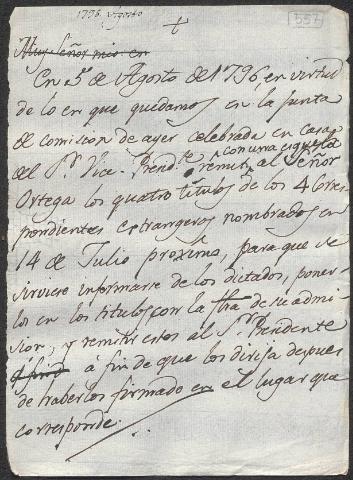 1796 Agosto
357
+
Muy Señor mio en
En 5 de Agosto de 1796, en virtud
de lo en que quedamos en la junta
de comision de ayer celebrada en casa
del Sr. Vice-Presidte. remiti al Señor
con una esquela
Ortega los quatro titulos de los 4 Corres
pondientes estrangeros nombrados en
14 de Julio proximo, para que se
sirviese informarse de los dictados, poner
los en los titulos con la fha de su admi
sion, y remitir estos al Sr. Presidente
á fin de que los dirija despues
de haberlos firmado en el lugar que
corresponde.